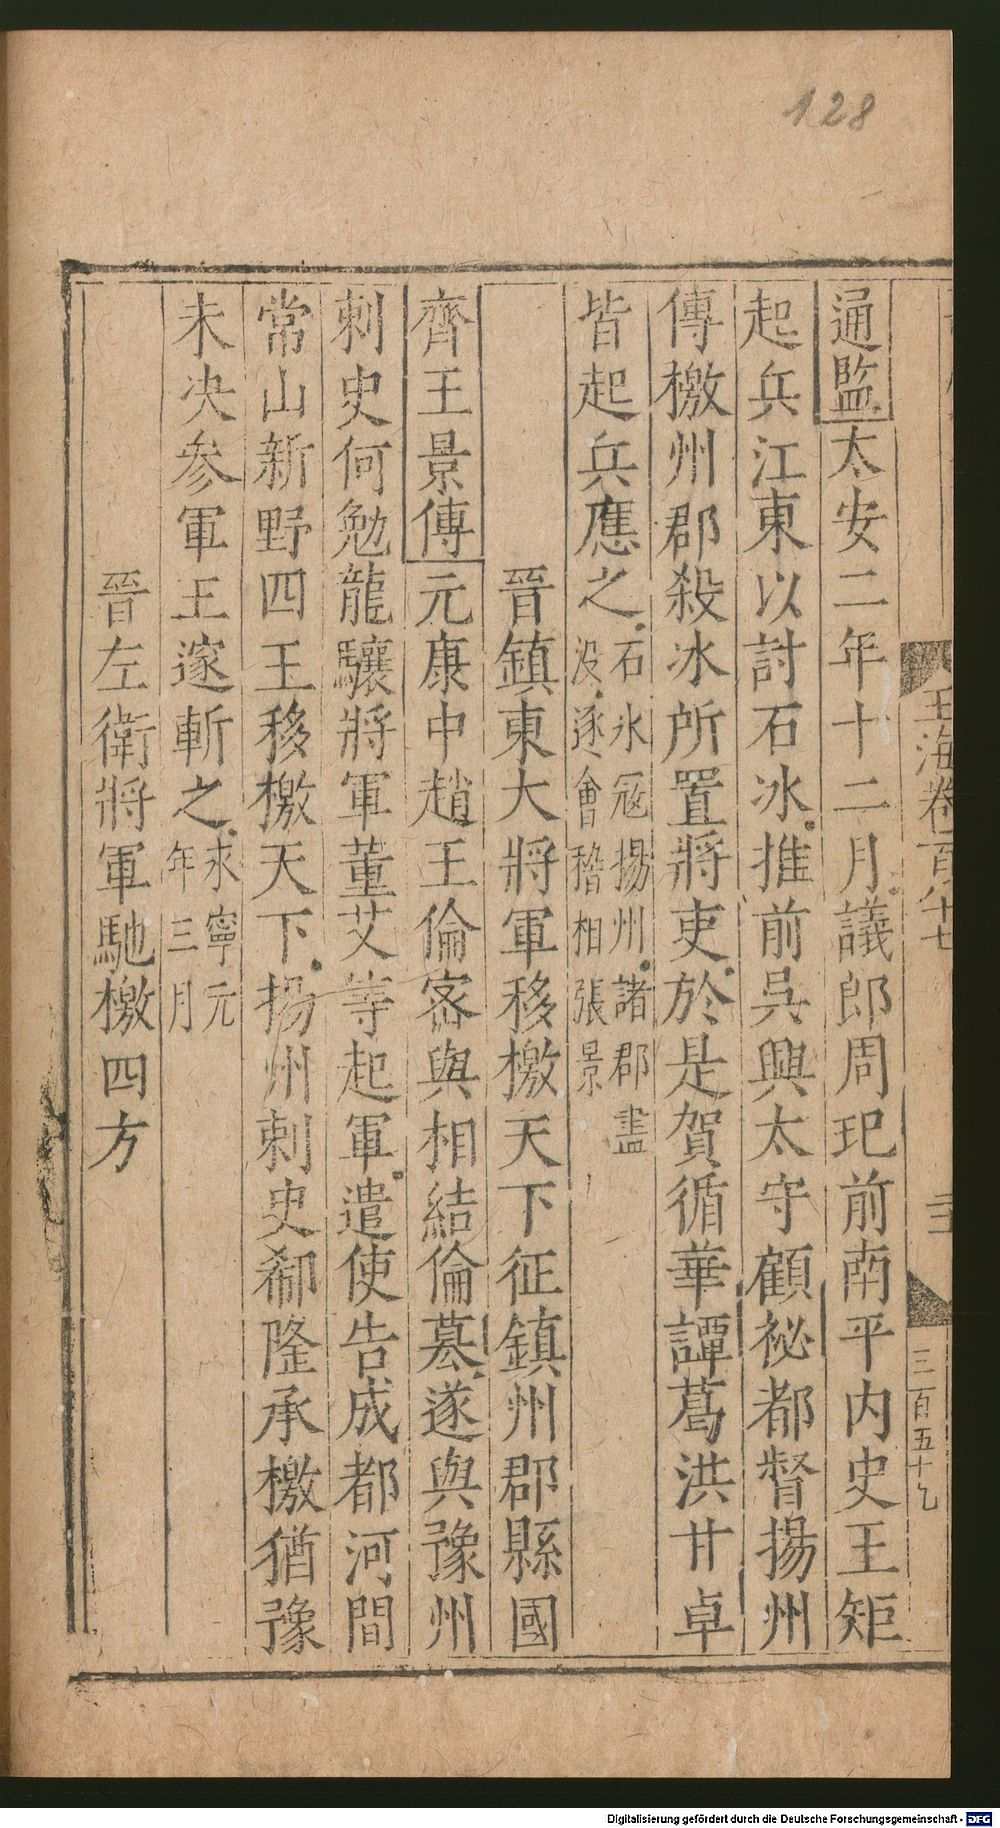 128
玉海卷一百八十七
三百五十七
通監太安二年十二月議郎周玘前南平内史王矩
起兵江東以討石冰推前吳興太守顧祕都督揚州
傳檄州郡殺冰所置將吏於是賀循華譚葛洪甘卓
皆起兵應之石氷冦揚州諸郡盡
没逐會稽相張景
晉鎮東大將軍移檄天下征鎮州郡縣國
齊王景傳元康中趙王倫密與相結倫簒遂與豫州
刺史何勉龍驤將軍董艾等起軍遣使告成都河間
常山新野四王移檄天下揚州刺史郗隆承檄猶豫
未决参軍王邃斬之求寧元
年三月
晉左衛將軍馳檄四方
Digitalisierung gefördert durch die Deutsche Forschungsgemeinschaft - DFG